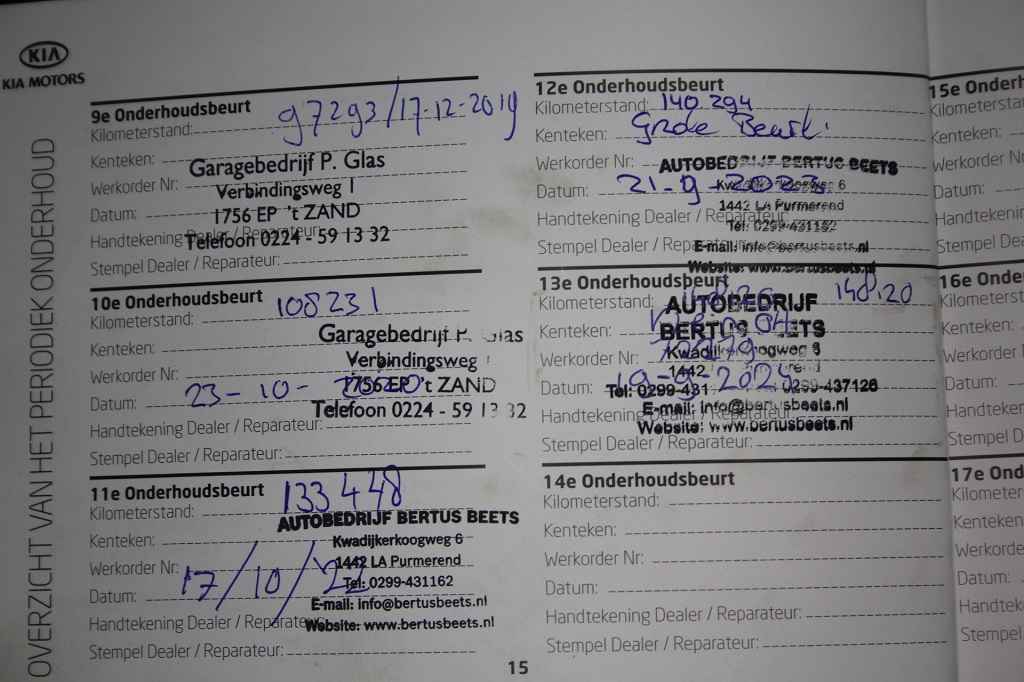 KIA
KIA MOTORS
OVERZICHT VAN HET PERIODIEK ONDERHOUD
9e Onderhoudsbeurt
97293/17-12-2019
Kilometerstand:
Kenteken:
Garagebedrijf P. Glas
Werkorder Nr:
Verbindingsweg 1
Datum:
1756 EP 't ZAND
Handtekening Dealer / Reparateur:
Telefoon 0224 - 59 13 32
Stempel Dealer / Reparateur:
10e Onderhoudsbeurt
108231
Kilometerstand:
Garagebedrijf P. Glas
Kenteken:
Verbindingsweg
Werkorder Nr:
1756 EP 't ZAND
Datum: 23-10-2020
Telefoon 0224 - 59 13 32
Handtekening Dealer / Reparateur:
Stempel Dealer / Reparateur:
11e Onderhoudsbeurt
133448
Kilometerstand:
AUTOBEDRIJF BERTUS BEETS
Kenteken:
Kwadijkerkoogweg 6
Werkorder Nr:
1442 LA Purmerend
17/10/'22
Tel: 0299-431162
Datum:
E-mail: info@bertusbeets.nl
Handtekening Dealer / Reparateur:
Website: www.bertusbeets.nl
Stempel Dealer / Reparateur:
12e Onderhoudsbeurt
Kilometerstand: 140.294
Kenteken: Grote Beurt.
Werkorder Nr:
AUTOBEDRIJF BERTUS BEETS
Datum: 21-9-2023
1442 LA Purmerend
Handtekening Dealer / Reparateur:
Tel: 0299-431162
Stempel Dealer / Reparateur:
E-mail: info@bertusbeets.nl
Website: www.bertusbeets.nl
13e Onderhoudsbeurt
148.20
Kilometerstand:
AUTOBEDRIJF
Kenteken:
BERTUS BEETS
Werkorder Nr:
1442
Datum: 19-9-2024
Tel: 0299-431 0299-437126
E-mail: info@bertusbeets.nl
Handtekening Dealer / Reparateur:
Website: www.bertusbeets.nl
Stempel Dealer / Reparateur:
14e Onderhoudsbeurt
Kilometerstand:
Kenteken:
Werkorder Nr:
Datum:
Handtekening Dealer / Reparateur:
Stempel Dealer / Reparateur:
15e Onderh
Kilometerstan
Kenteken:
Werkorder N
Datum:
Handtekenin
Stempel Dea
16e Onde
Kilometerst
Kenteken:
Werkorder
Datum:
Handteken
Stempel D
17e Ond
Kilometer
Kenteken
Werkorde
Datum:
Handtek
Stempel
15